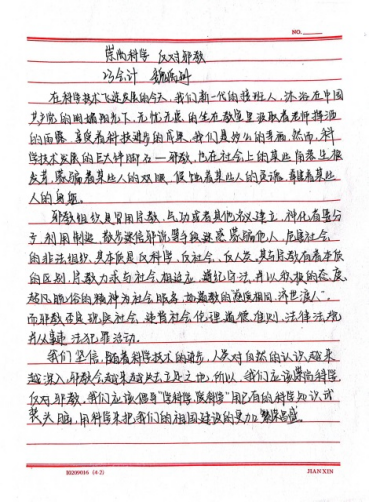 NO.
崇尚科学 反对邪教
会计
在科学技术飞速发展的今天,我们新一代的接班人,沐浴在中国
共产党的阳光下,无忧无虑的生在教室里汲取着老师挥洒
的雨露,享受着科技进步的成果,我们是多么的幸福,然而,科
学技术发展的巨大绊脚石——邪教,也在社会上的某些角落生根
发芽,蒙骗着某些人的双眼,侵蚀着某些人的灵魂,着某些
人的身躯。
邪教组织是冒用宗教、气功或者其他名义建立,神化首要分
子,利用制造、散步迷信邪说等手段迷惑、蒙骗他人,危害社会
的非法组织,其本质是反科学、反社会、反人类,其与宗教有着本质
的区别,宗教力求与社会相适应,遵纪守法,并以积极的态度,
超凡脱俗的精神为社会服务,如道教的慈度相同,济世渡人”。
而邪教否是现实社会,违背社会伦理道德准则,法律法规
并从事违法犯罪活动。
我们坚信,随着科学技术的进步,人类对自然的认识越来
越深入,邪教会越来越无立足之地,所以,我们应该崇尚科学,
反对邪教,我们应该倡导“学科学,爱科学”用已有的科学知识武
装头脑,用科学来把我们的祖国建设的更加繁荣昌盛。
10209016 (4-2)
JIAN XIN